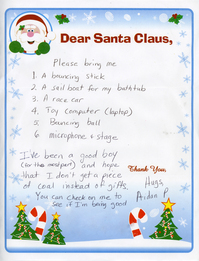 Dear Santa Claus,
Please bring me
1. A bouncing stick
2. A sail boat for my bathtub
3. A race car
4. Toy computer (laptop)
5. Bouncing ball
6 microphone + stage
I've been a good boy
(for the most part) and hope
that I don't get a piece
of coal instead of gifts.
You can check on me to
see if I'm being good
Thank You,
Hugs,
Aidan P